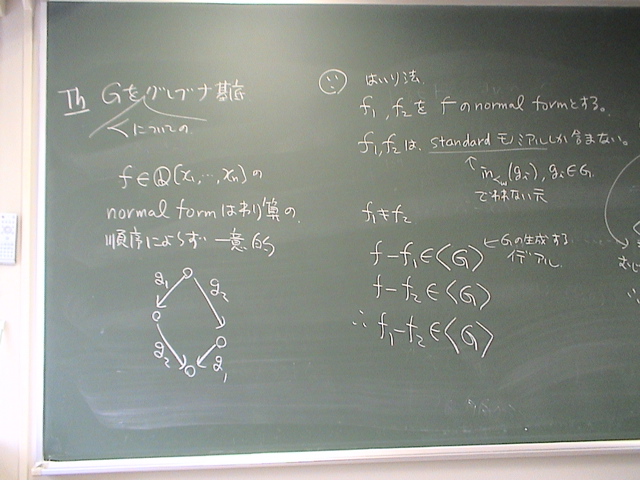 Th Gをグレブナ基底
<についての
f∈Q[x1,…,xn]の
normal formはわり算の
順序によらず一意的
g1 g2
g2 g1
はいり法
f1,f2をfのnormal formとする。
f1,f2は、standardモノミアルしか含まない。
in<(gi), gi∈G
でわれない元
f1≠f2
f-f1∈〈G〉 ←Gの生成する
イデアル
f-f2∈〈G〉
∴ f1-f2∈〈G〉